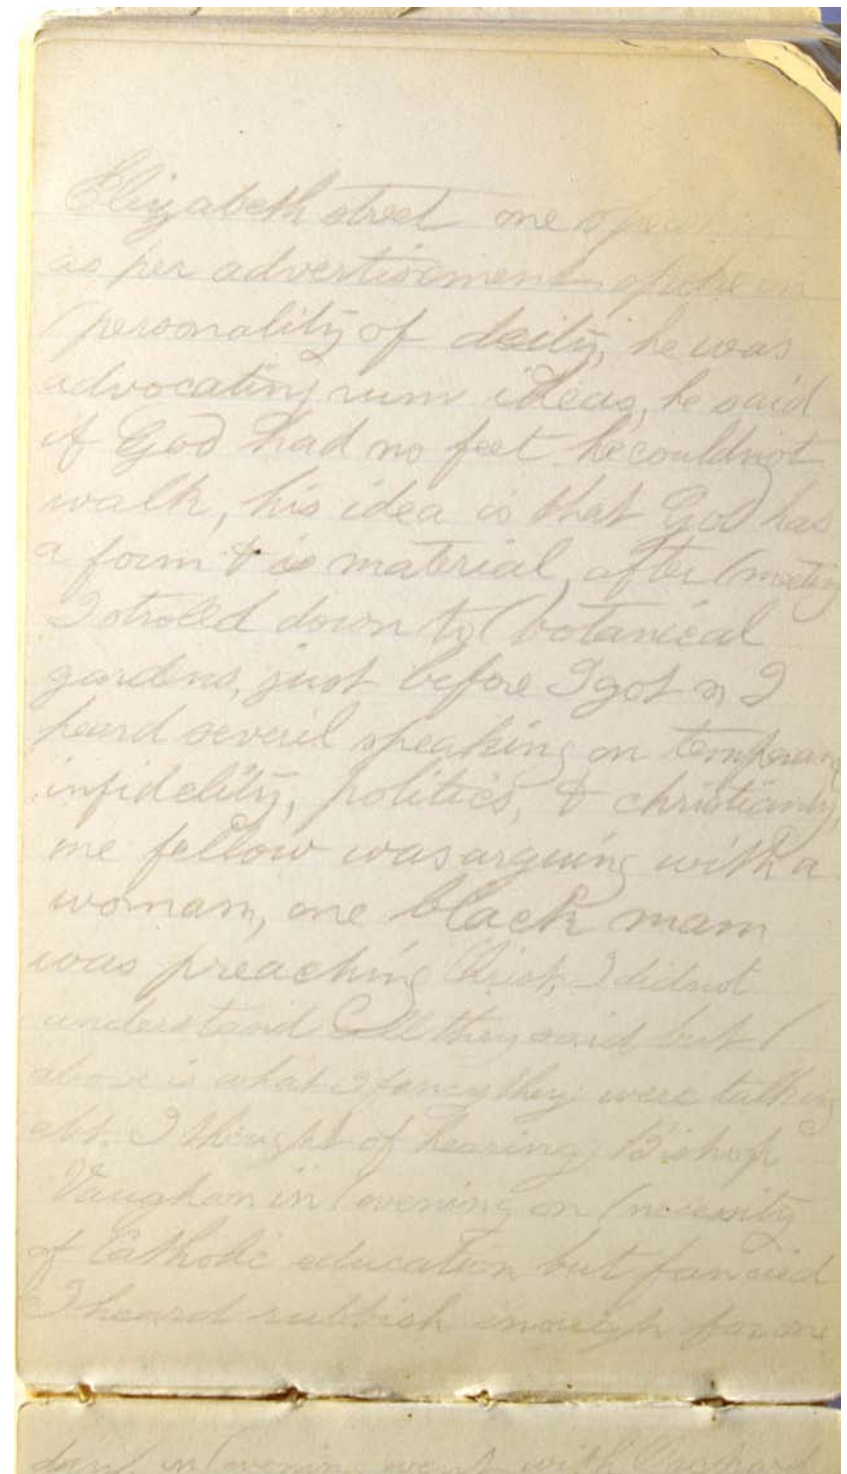 Elizabeth street one speaker
as per advertisement spoke on
( personality of deity, he was
advocating rum ideas, he said
if God had no feet he couldnot
walk, his idea is that God has
a form & is material, after ( meeting
I strolled down to ( botanical
gardens, just before I got in I
heard severil speaking on temperance
infidelity, politics, & christianity,
one fellow was arguing with a
woman, one black man
was preaching Christ, I didnot
understand all they said but (
above is what I fancy they were talking
abt. I thought of hearing Bishop
Vaughan in ( evening on ( necessity
of Catholic education but fancied
I heard rubbish enough for one
day, in ( evening went with